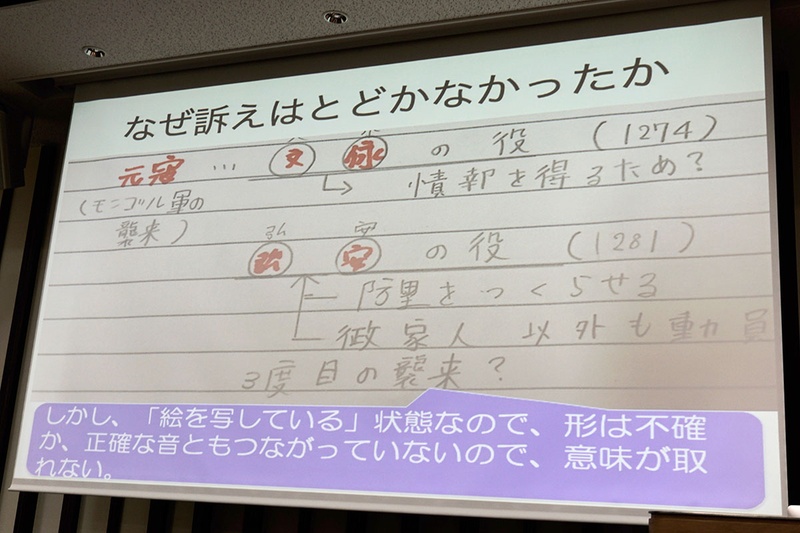 なぜ訴えはとどかなかったか
元寇 … 文 永 の 役 (1274)
(モンゴル軍の
襲来)
情報を得るため?
弘 安
弘 安 の 役 (1281)
防塁をつくらせる
御家人 以外も動員
3度目の襲来?
しかし、「絵を写している」状態なので、形は不確
か、正確な音ともつながっていないので、意味が取
れない。